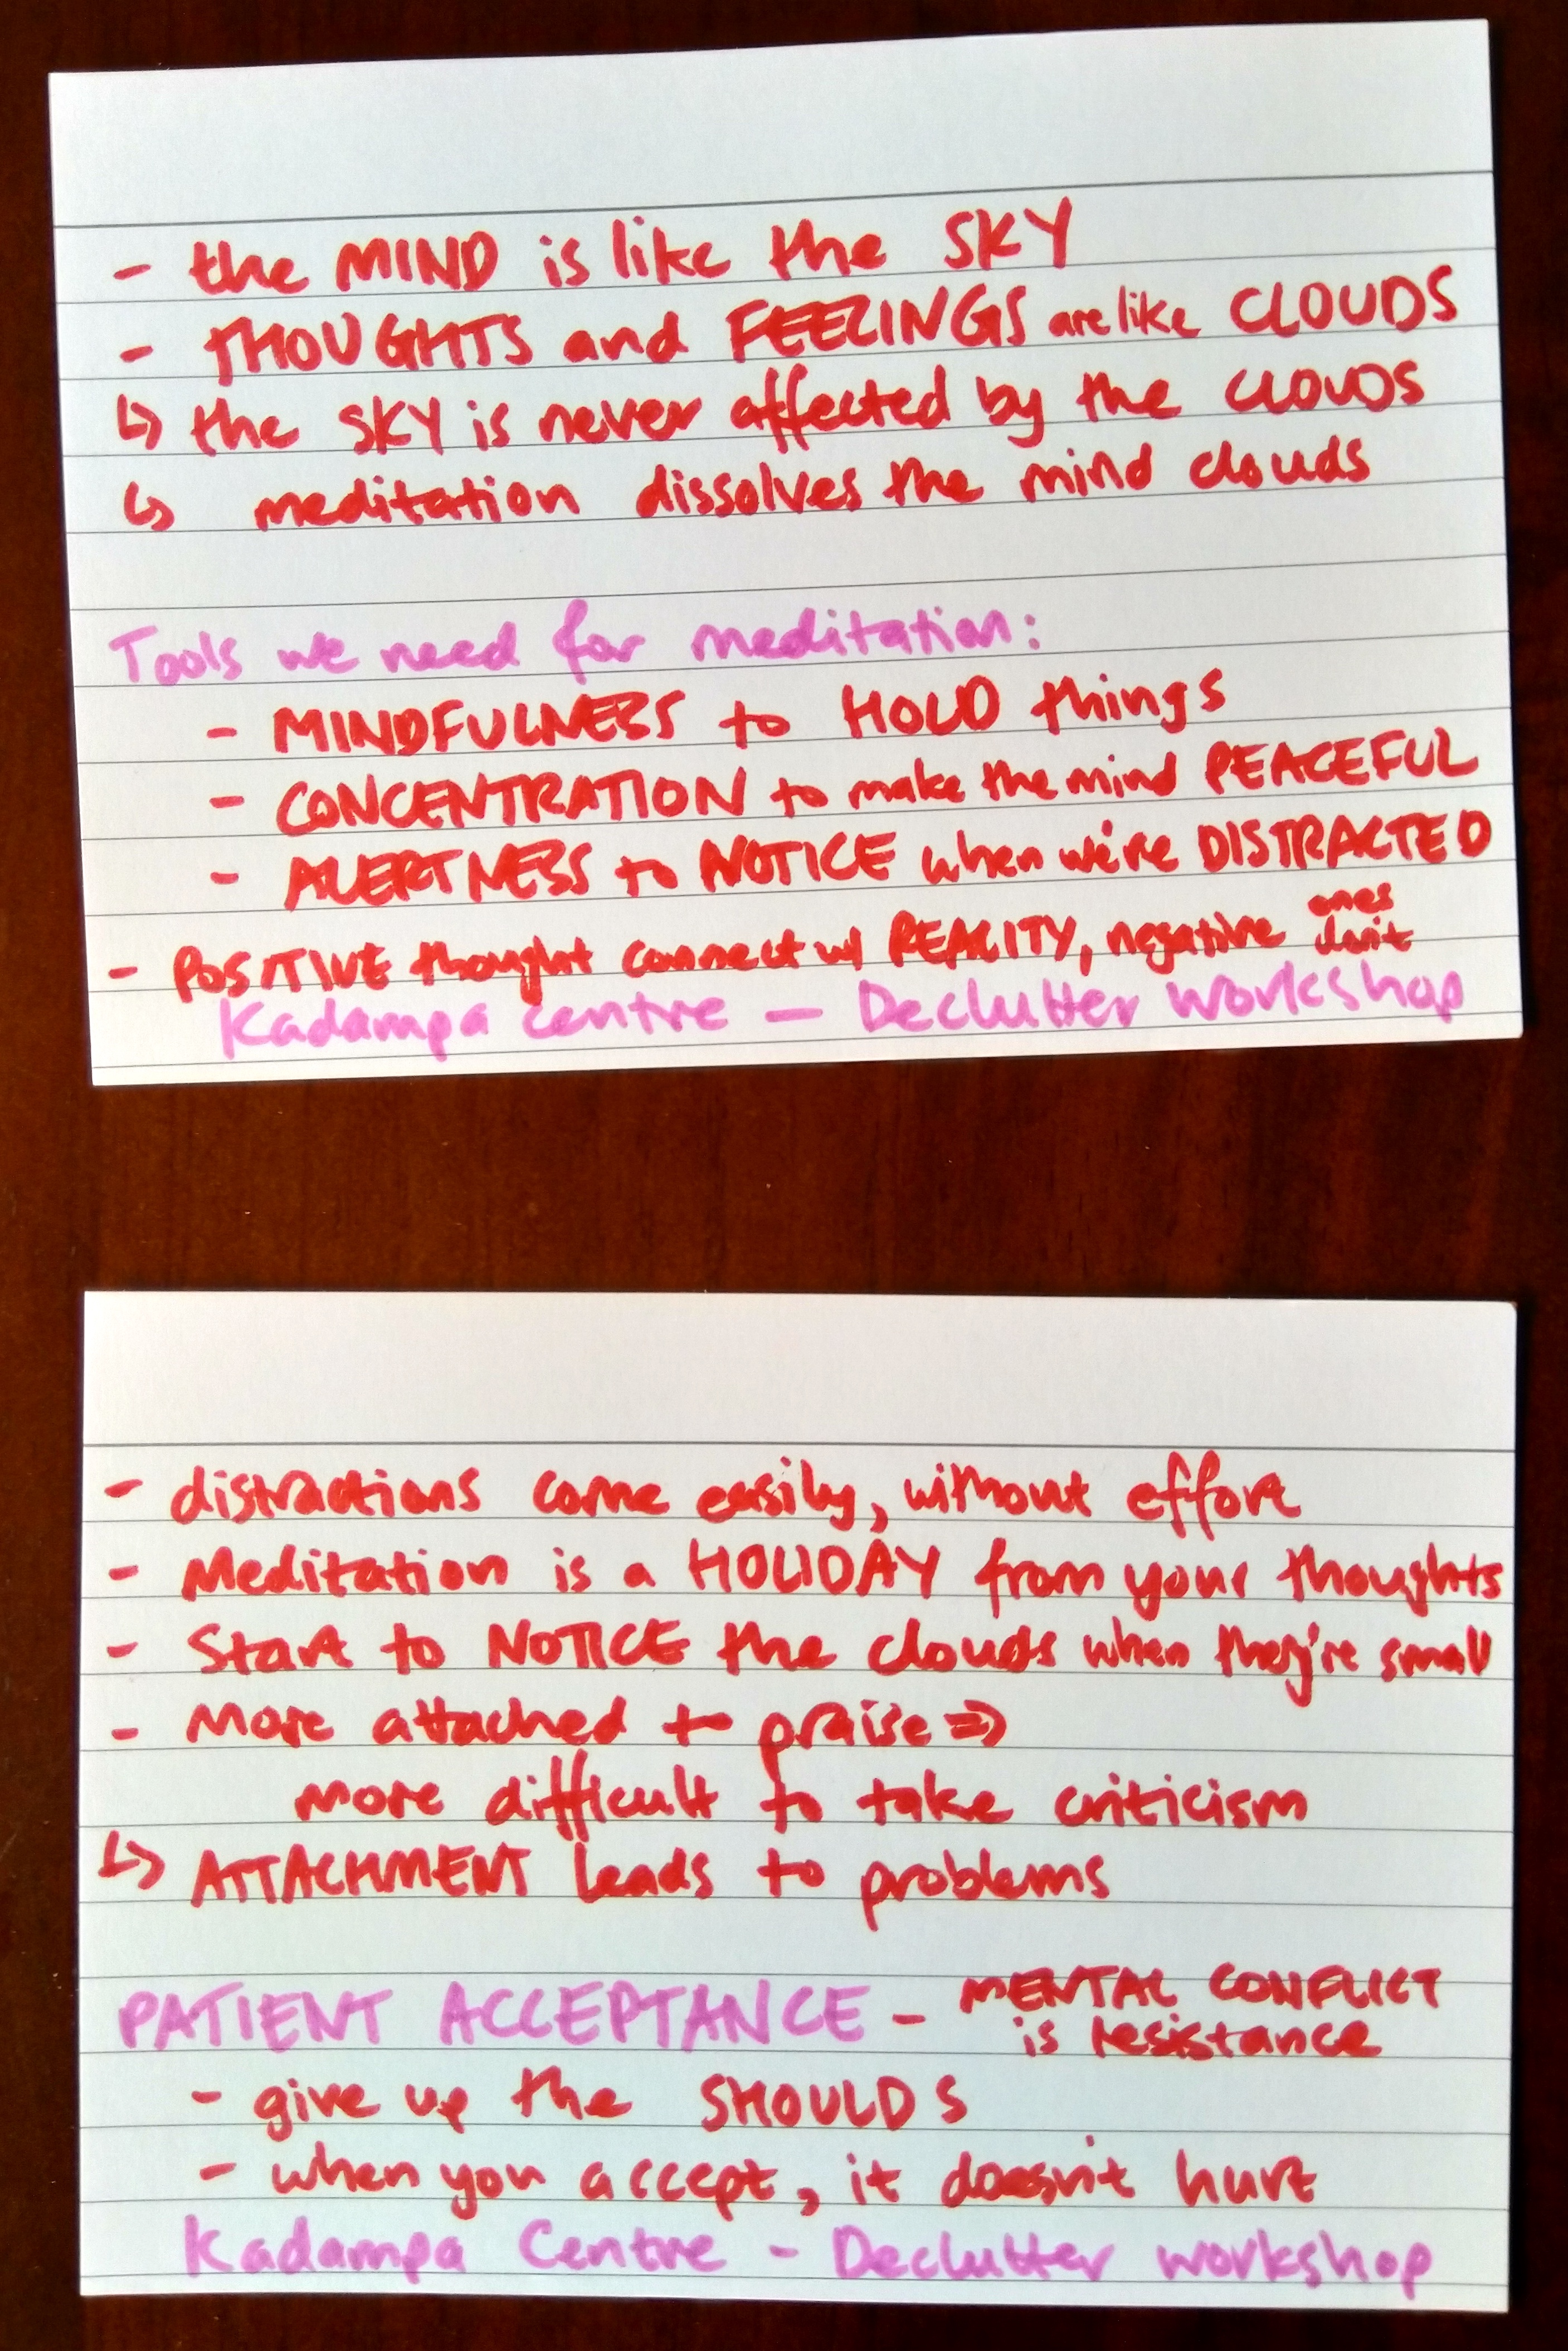 - the MIND is like the SKY
- THOUGHTS and FEELINGS are like CLOUDS
↳ the SKY is never affected by the CLOUDS
↳ meditation dissolves the mind clouds
Tools we need for meditation:
- MINDFULNESS to HOLD things
- CONCENTRATION to make the mind PEACEFUL
- ALERTNESS to NOTICE when we're DISTRACTED
- POSITIVE thought connect w/ REALITY, negative ones don't
Kadampa Centre — Declutter Workshop
- distractions come easily, without effort
- Meditation is a HOLIDAY from your thoughts
- Start to NOTICE the clouds when they're small
- More attached to praise ⇒
more difficult to take criticism
↳ ATTACHMENT leads to problems
PATIENT ACCEPTANCE - MENTAL CONFLICT
is resistance
- give up the SHOULDS
- when you accept, it doesn't hurt
Kadampa Centre - Declutter Workshop